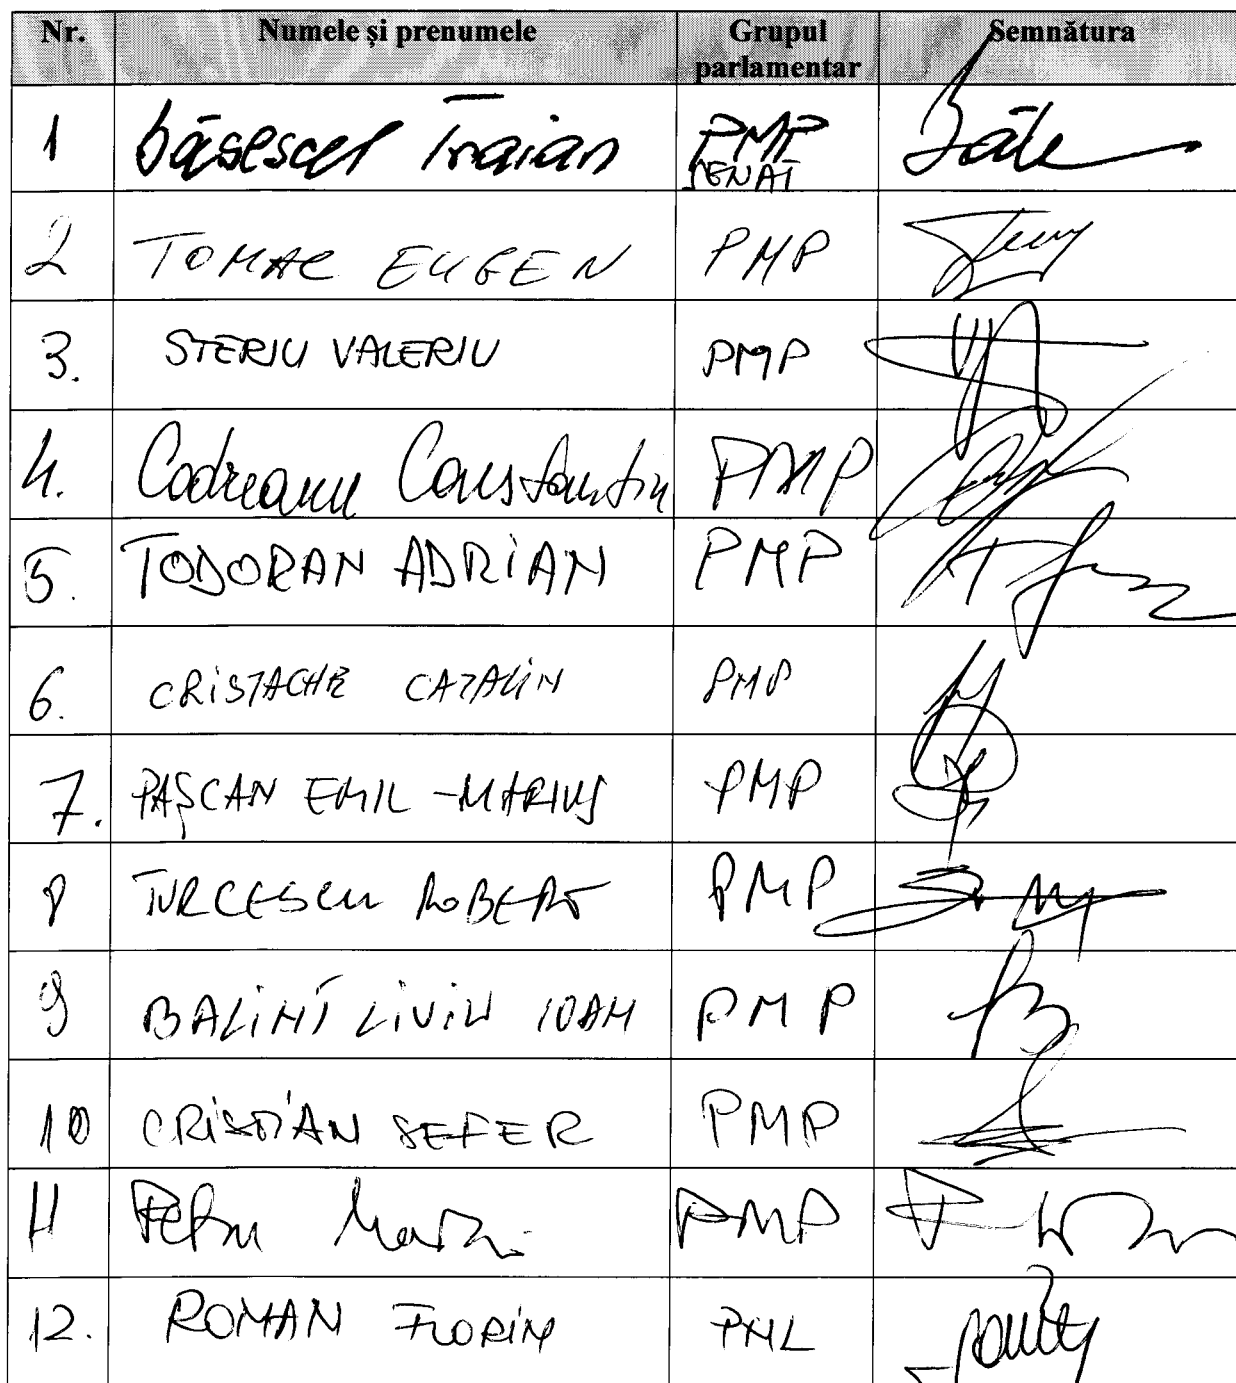 Nr. Numele și prenumele Grupul parlamentar Semnătura
1 Băsescu Traian PMP SENAT
2 TOMAC EUGEN PMP
3. STERIU VALERIU PMP
4. Codreanu Constantin PMP
5. TODORAN ADRIAN PMP
6. CRISTACHE CATALIN PMP
7. PAȘCAN EMIL-MARIUS PMP
8 TURCESCU ROBERT PMP
9 BALINT LIVIU IOAN PMP
10 CRISTIAN SEFER PMP
11 Petru PMP
12. ROMAN FLORIN PNL